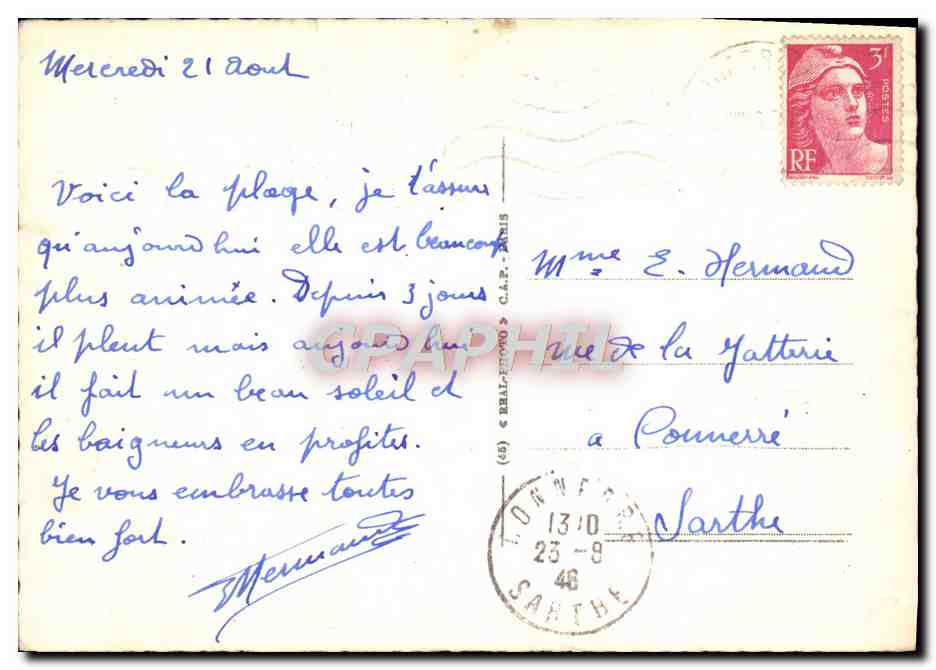 Mercredi 21 Aout
Voici la plage, je t'assure
qu'aujourd'hui elle est beaucoup
plus animée. Depuis 3 jours
il pleut mais aujourd'hui
il fait un beau soleil et
les baigneurs en profites.
Je vous embrasse toutes
bien fort.
Hermand
(45) « REAL-PHOTO » C.A.P. - PARIS
3f
POSTES
RF
Mme E. Hermand
rue de la Jatterie
a Connerré
Sarthe
CONNERRE
13 10
23 - 8
46
SARTHE
CPAPHIL